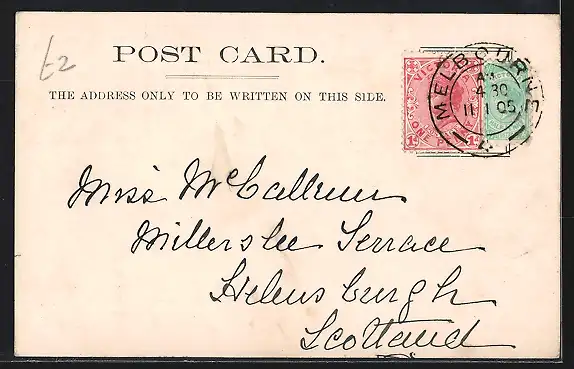 £2
POST CARD.
THE ADDRESS ONLY TO BE WRITTEN ON THIS SIDE.
VICTORIA
ONE PENNY
MELBOURNE
4 30
11 1 05
Miss McCallum
Millerslee Terrace
Helensburgh
Scotland